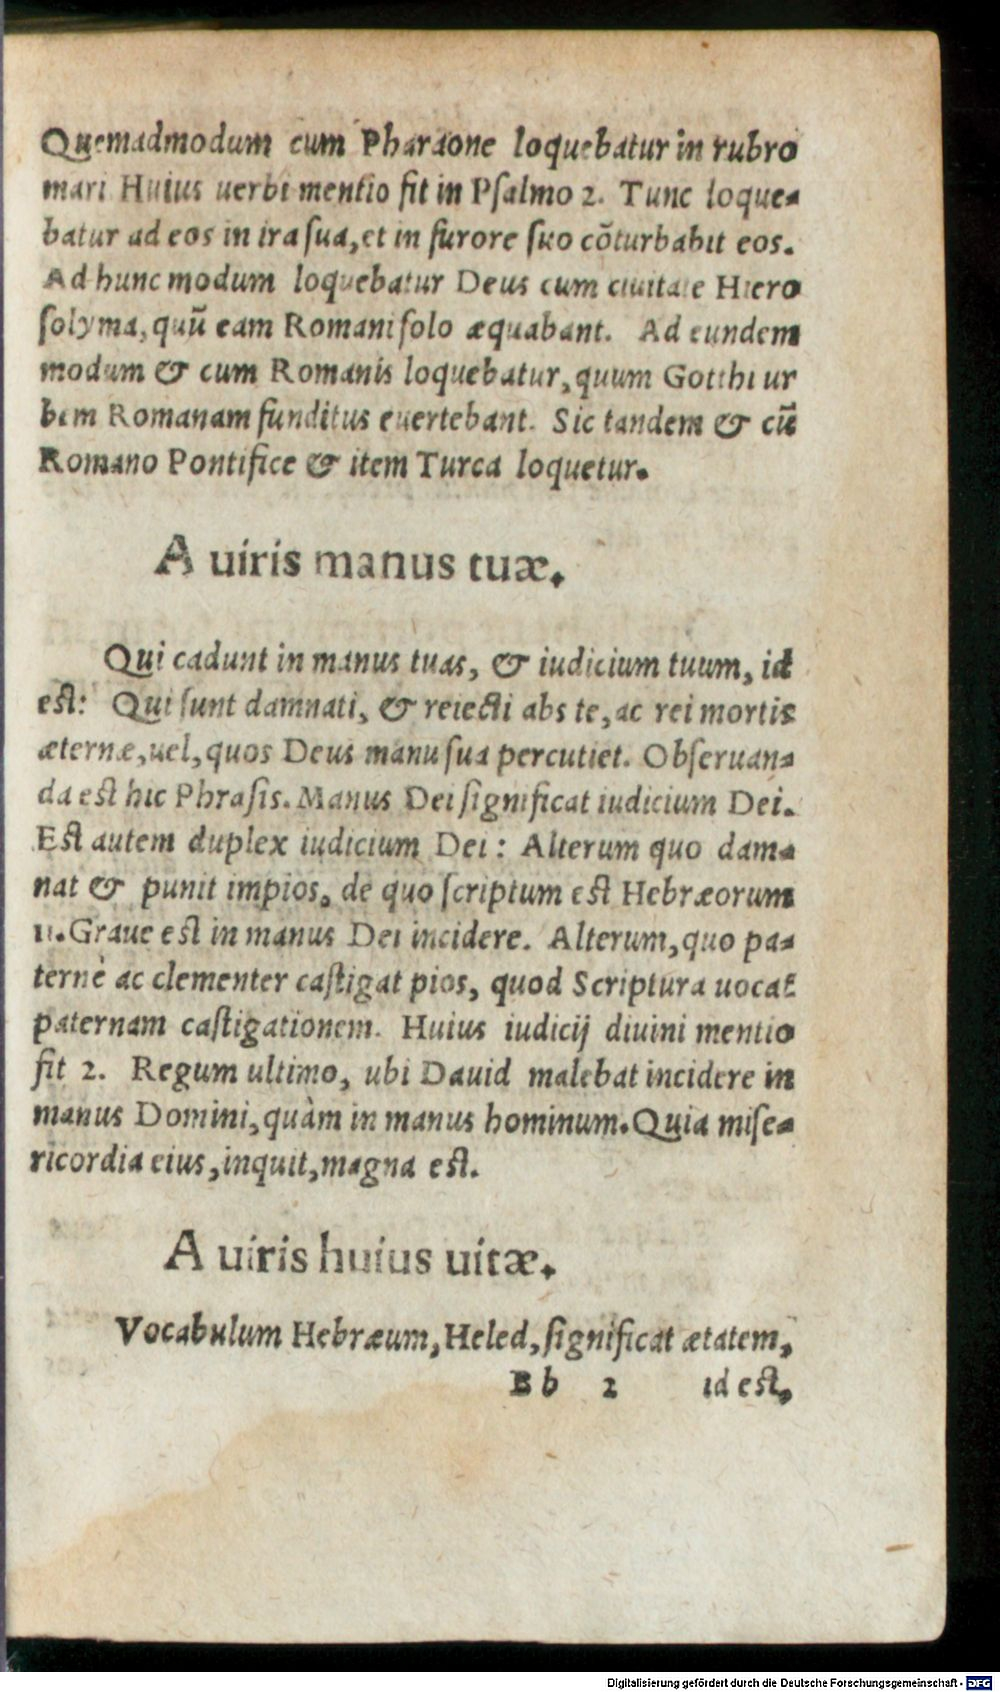 Quemadmodum cum Pharaone loquebatur in rubro
mari Huius uerbi mentio fit in Psalmo 2. Tunc loque-
batur ad eos in ira sua, et in furore suo cõturbabit eos.
Ad hunc modum loquebatur Deus cum ciuitate Hiero
solyma, quũ eam Romani solo æquabant. Ad eundem
modum & cum Romanis loquebatur, quum Gotthi ur
bem Romanam funditus euertebant. Sic tandem & cũ
Romano Pontifice & item Turca loquetur.
A uiris manus tuæ.
Qui cadunt in manus tuas, & iudicium tuum, id
est: Qui sunt damnati, & reiecti abs te, ac rei mortis
æternæ, uel, quos Deus manu sua percutiet. Obseruan-
da est hic Phrasis. Manus Dei significat iudicium Dei.
Est autem duplex iudicium Dei: Alterum quo dam-
nat & punit impios, de quo scriptum est Hebræorum
11. Graue est in manus Dei incidere. Alterum, quo pa-
ternè ac clementer castigat pios, quod Scriptura uocat
paternam castigationem. Huius iudicij diuini mentio
fit 2. Regum ultimo, ubi Dauid malebat incidere in
manus Domini, quàm in manus hominum. Quia mise-
ricordia eius, inquit, magna est.
A uiris huius uitæ.
Vocabulum Hebræum, Heled, significat ætatem,
Bb 2 id est,
Digitalisierung gefördert durch die Deutsche Forschungsgemeinschaft - DFG